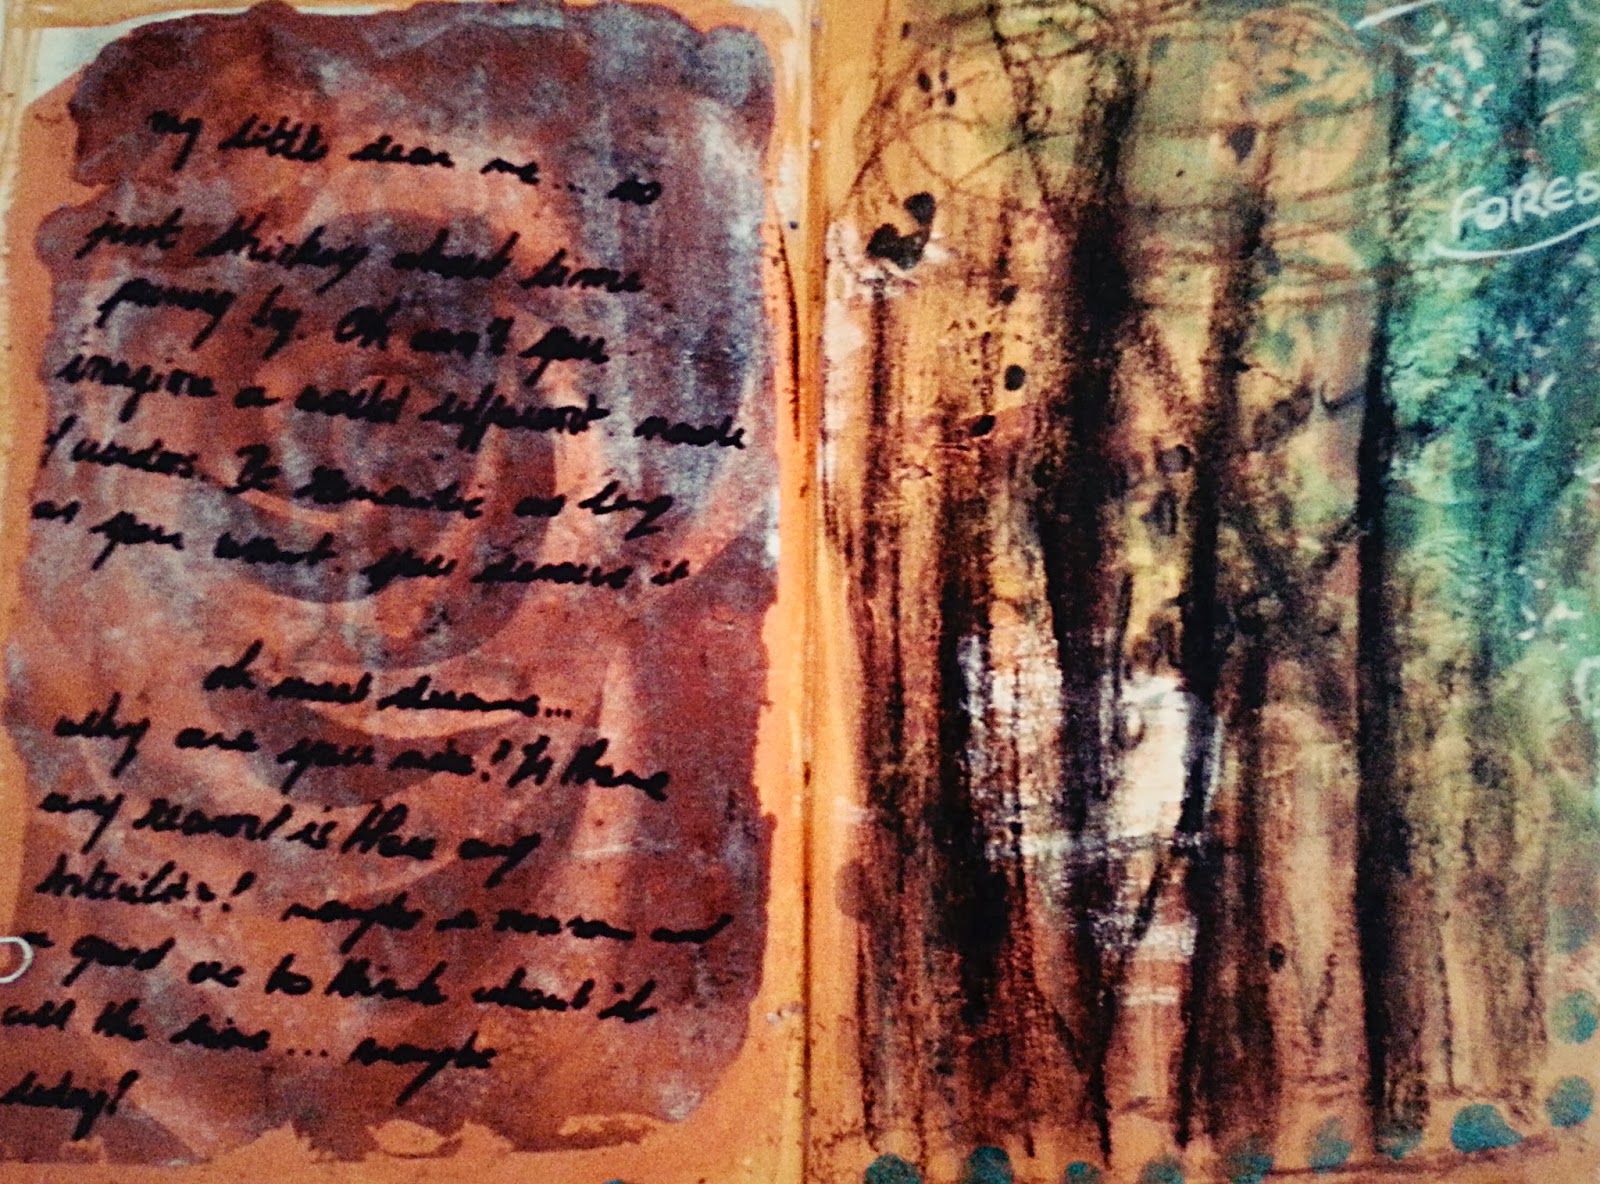 my little dear me... so
just thinking about time
passing by. Oh can't you
imagine a world different made
of wonders. Be romantic as long
as you want. you deserve it
oh sweet dreams...
why are you mine? Is there
any reason? is there any
maybe a reason and
a good one to think about it
all the time... maybe
today!
FORES